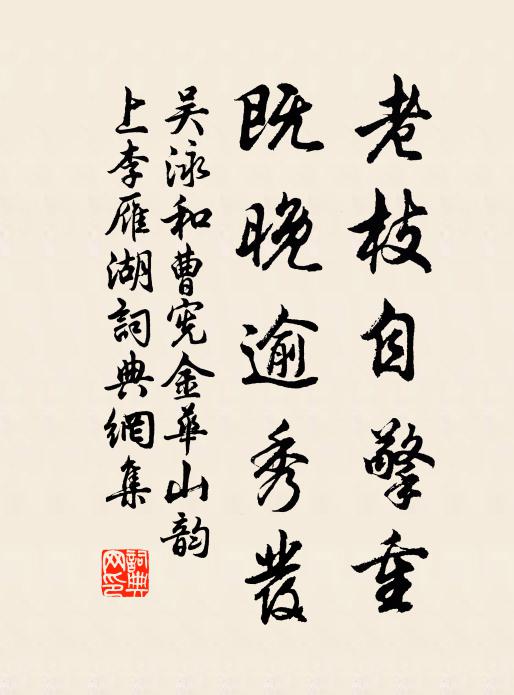 老枝自擎重
既晚逾秀發
吴泳和曹宪金華山韵
上李雁湖詞典網集
詞典网印